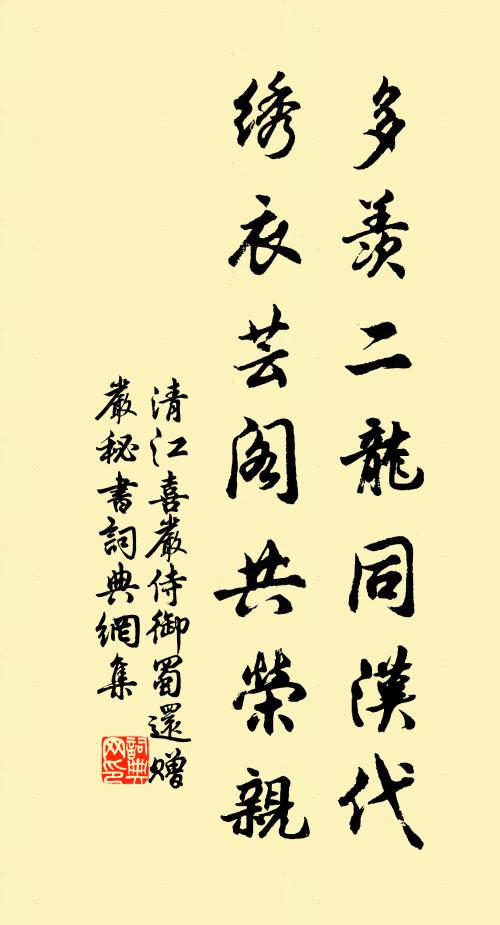 多羨二龍同漢代
绣衣芸阁共榮親
清江喜嚴侍御蜀還赠
嚴秘書詞典網集
詞典
网印